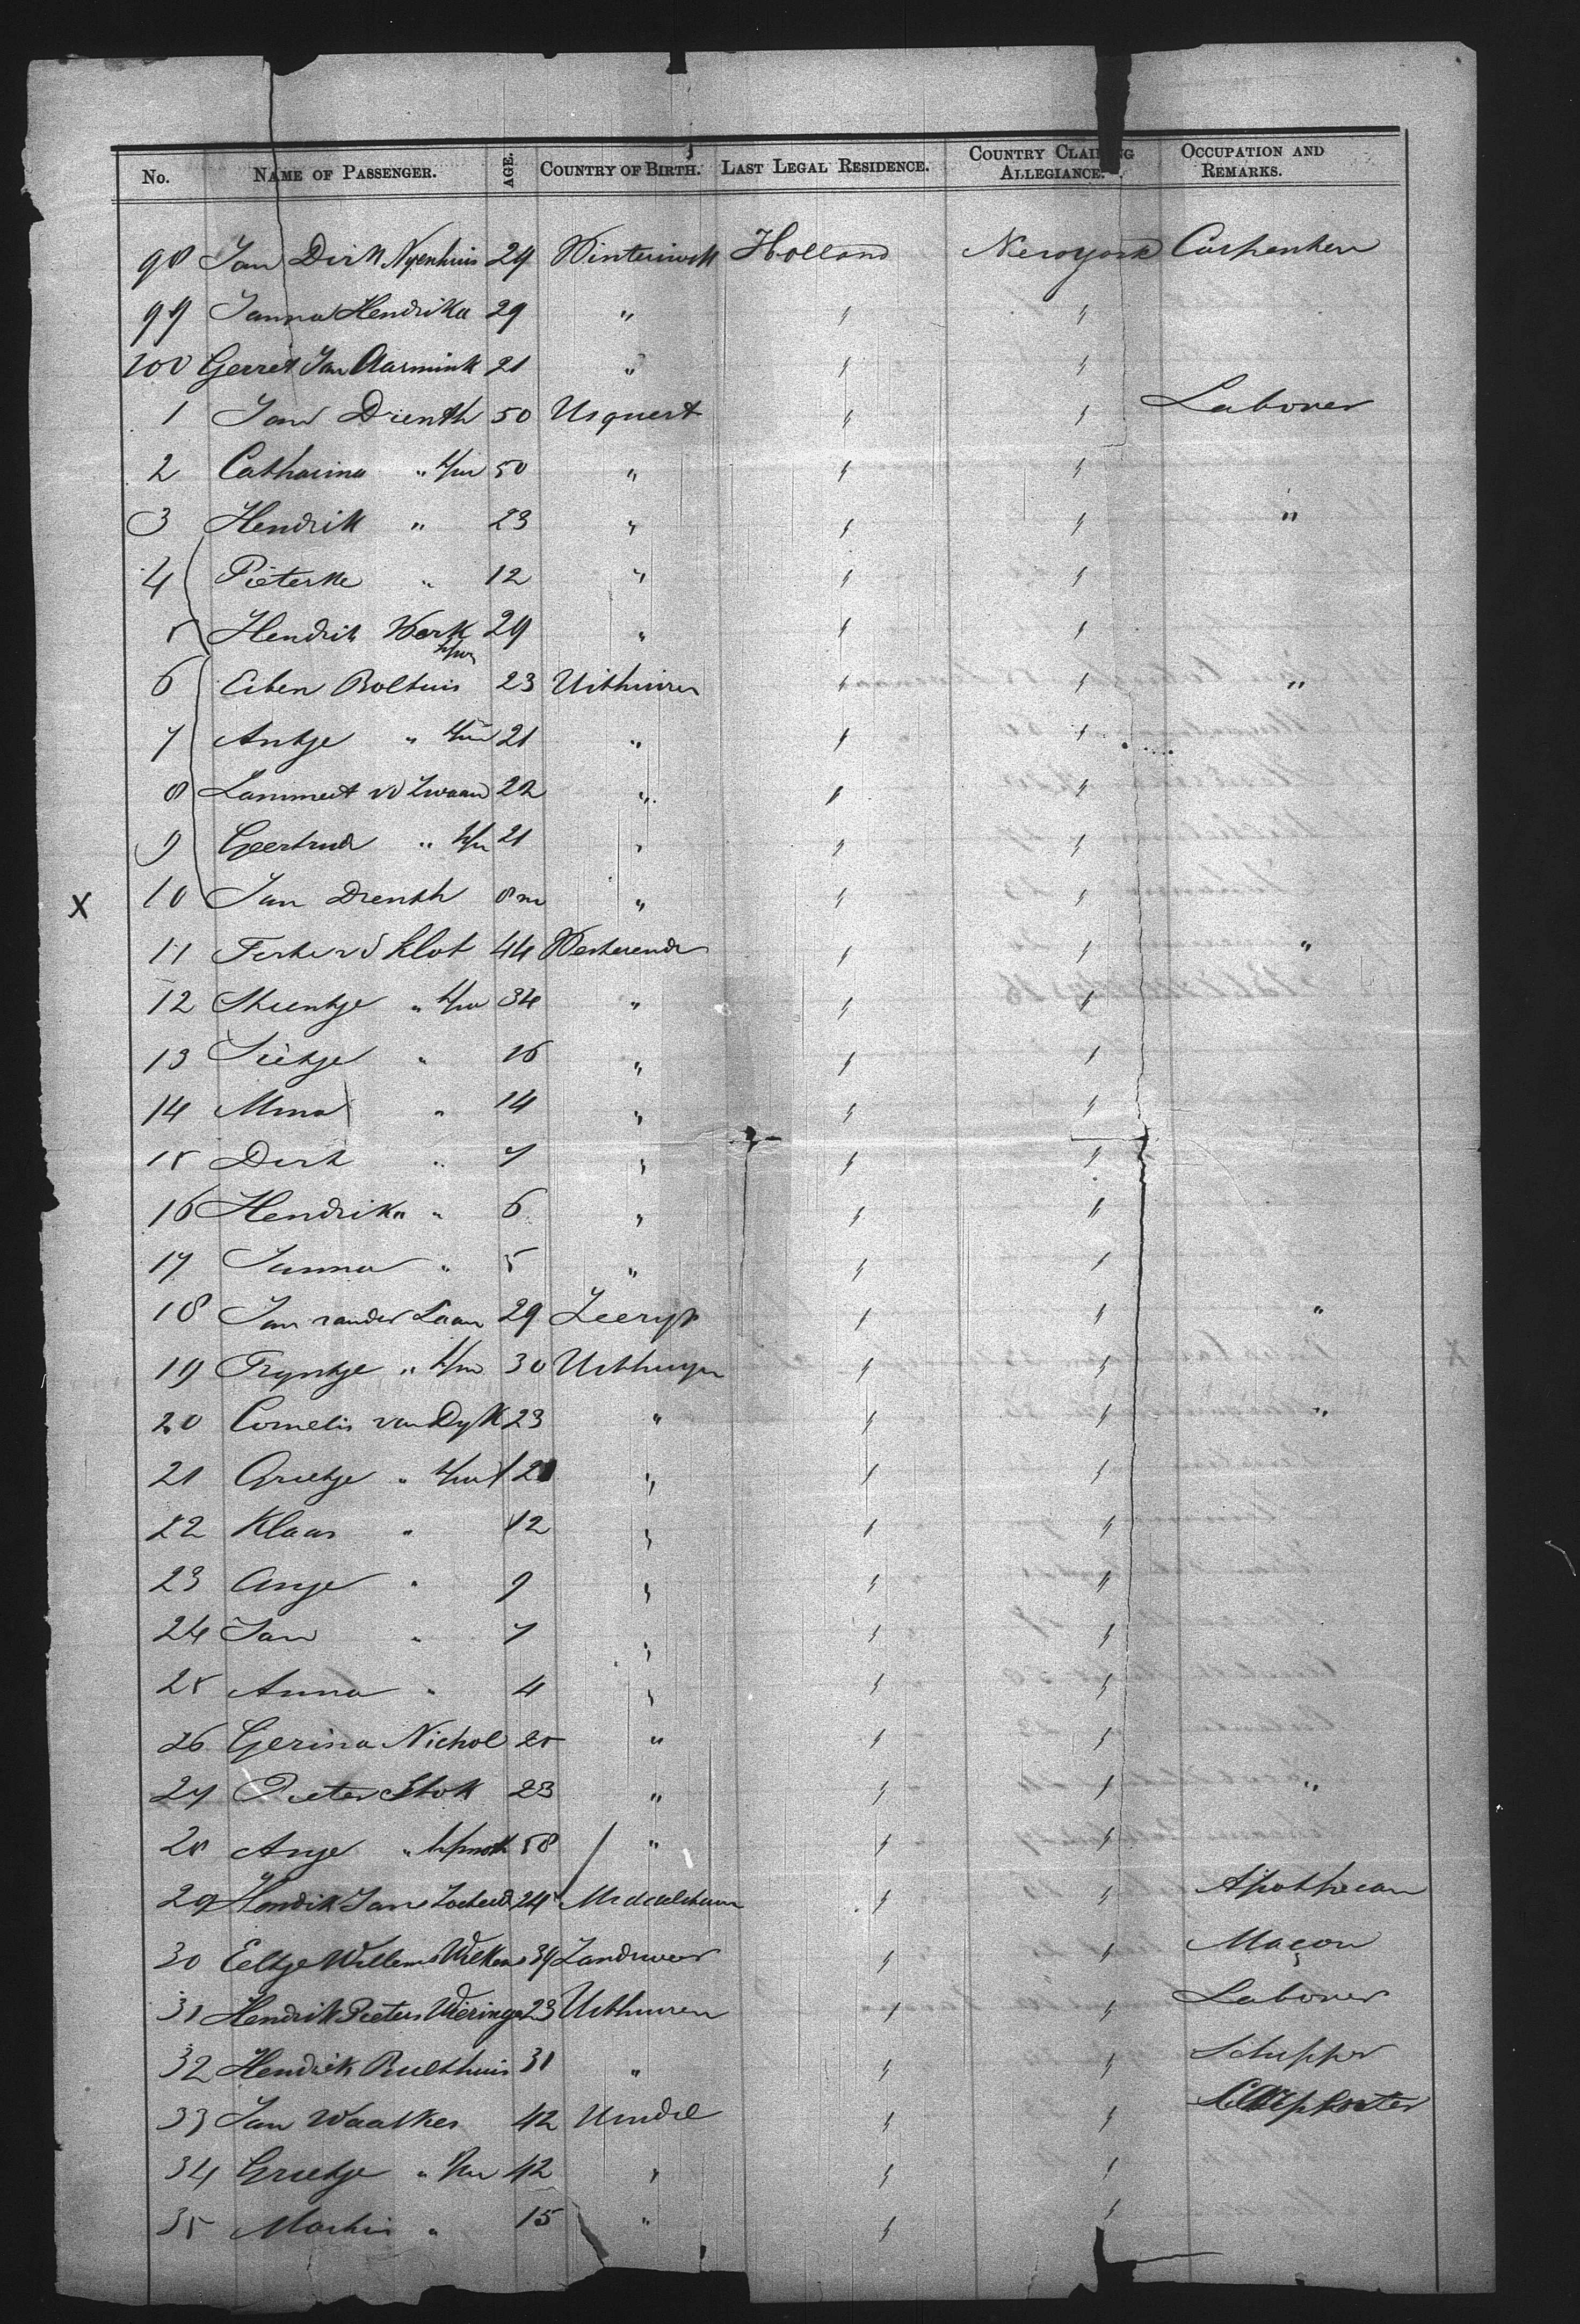 No. NAME OF PASSENGER. AGE. COUNTRY OF BIRTH. LAST LEGAL RESIDENCE. COUNTRY CLAIMING ALLEGIANCE. OCCUPATION AND REMARKS.
98 Jan Dirk Nyenhuis 29 Winterswk Holland New York Carpenter
99 Janna Hendrika 29 " " "
100 Gerret Jan Aarmink 21 " " "
1 Jan Drenth 50 Usquert " " Laborer
2 Catharina " h/w 50 " " "
3 Hendrik " 23 " " " "
4 Pieterke " 12 " " "
5 Hendrik Werk 29 " " "
6 Eiben Bolthuis h/w 23 Uithuizen " " "
7 Antje " h/w 21 " " "
8 Lammert vd Zwaan 22 " " "
9 Geertrud " h/w 21 " " "
X 10 Jan Drenth 8m " " "
11 vd Klot 44 " " "
12 " h/w 34 " " "
13 Sietje " 16 " " "
14 Mina " 14 " " "
15 Dirk " 7 " " "
16 Hendrika " 6 " " "
17 Janna " 5 " " "
18 Jan vander Laan 29 Zeeryp " " "
19 Tryntje " h/w 30 " "
20 Cornelis van Dyk 23 " " " "
21 Grietje " h/w 21 " " "
22 Klaas " 12 " " "
23 Anje " 9 " " "
24 Jan " 7 " " "
25 Anna " 4 " " "
26 Gerina Nichol 25 " " "
27 Pieter Stok 23 " " " "
28 Anje " h/moth 58 " " "
29 Hendik Jans 24 " "
30 Eeltje Willems Wilkens 39 Zandweer " " Maçon
31 Hendrik Pieters Wieringa 23 Uithuizen " " Laborer
32 Hendrik Bulthuis 31 " " " Schipper
33 Jan Waalkes 42 " "
34 Grietje " h/w 42 " " "
35 " 15 " " "